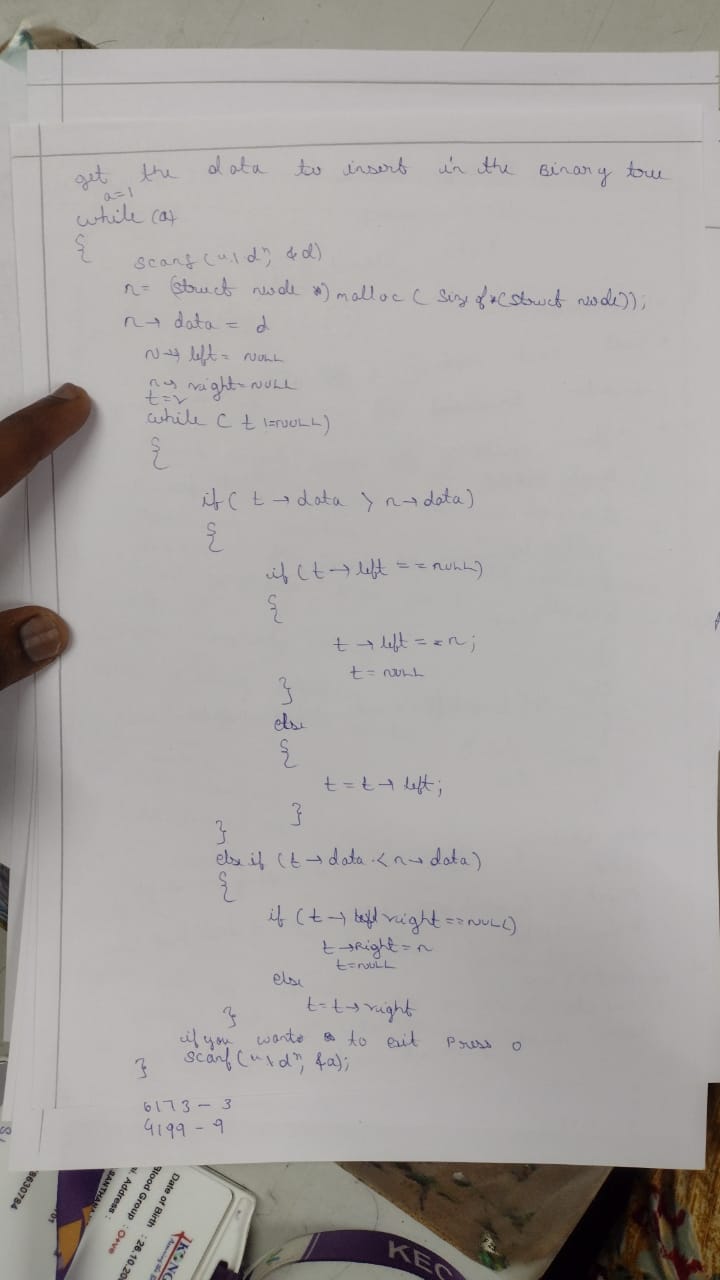 get the data to insert in the Binary tree
a=1
while (a)
{
scanf ("%d", &d)
n= (struct node *) malloc ( sizeof *(struct node));
n→ data = d
n→ left = NULL
n→ right=NULL
t=r
while ( t !=NULL)
{
if ( t → data > n→data)
{
if (t → left == NULL)
{
t → left = n;
t = NULL
}
else
{
t = t → left;
}
}
else if (t → data < n→ data)
{
if (t → right ==NULL)
t →Right = n
t=NULL
else
t= t→ right
}
if you wants to exit Press 0
scanf ("%d", &a);
}
6173 - 3
4199 - 9
8630784
Date of Birth : 26.10.20
Blood Group : O+ve
Address :
KEC